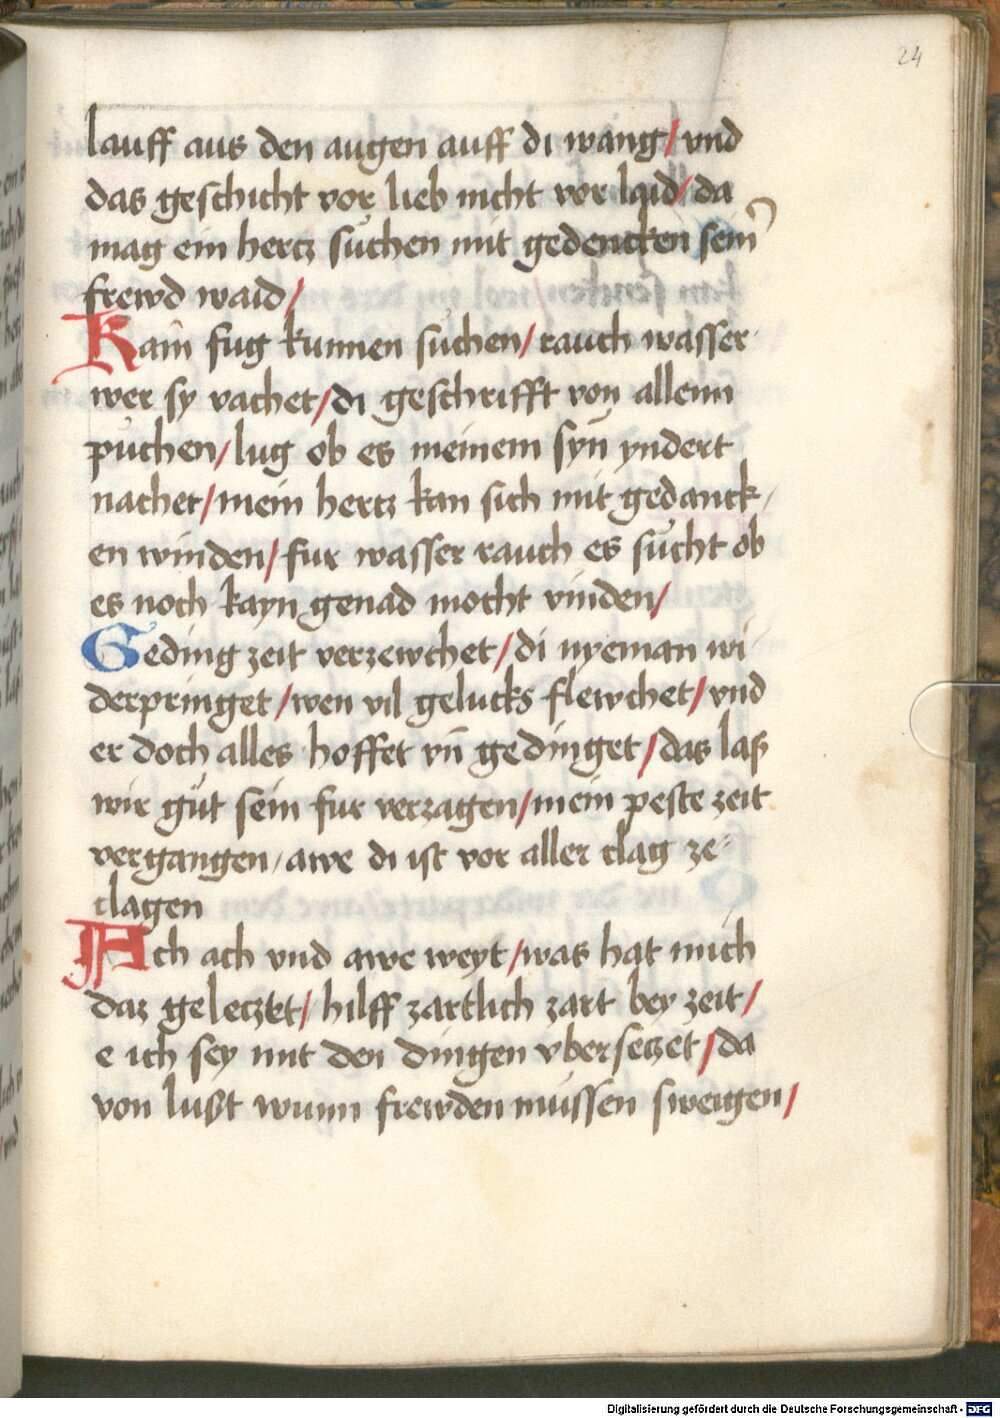 24
lauff aus den augen auff di wang/ vnd
das geschicht vor lieb nicht vor laid/ da
mag ein hertz suͦchen mit gedencken sein
frewd waid/
Kain fug kunnen suͦchen/ rauch wasser
wer sy vachet/ di geschrifft von allenn
puͦchen/ lug ob es meinem syn̄ yndert
nachet/ mein hertz kan sich mit gedanck
en winden/ fur wasser rauch es suͦcht ob
es noch kayn genad mocht vinden/
Geding zeit verzewchet/ di nyeman wi
derpringet/ wen vil gelucks flewchet/ vnd
er doch alles hoffet vn̄ gedinget/ das laß
wir guͦt sein fur verzagen/ mein peste zeit
vergangen/ awe di ist vor aller clag ze
clagen
Ach ach vnd awe weyt/ was hat mich
daz geleczket/ hilff zartlich zart bey zeit/
e ich sey mit den dingen vberseczet/ da
von lußt wunn frewden müssen sweigen/
Digitalisierung gefördert durch die Deutsche Forschungsgemeinschaft - DFG